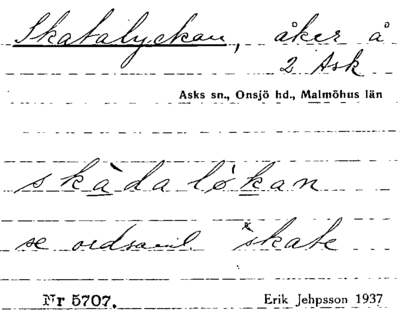 Skatalyckan, åker å
2 Ask
Asks sn., Onsjö hd., Malmöhus län
skàdaløkan
se ordsaml *skate
Nr 5707. Erik Jehpsson 1937